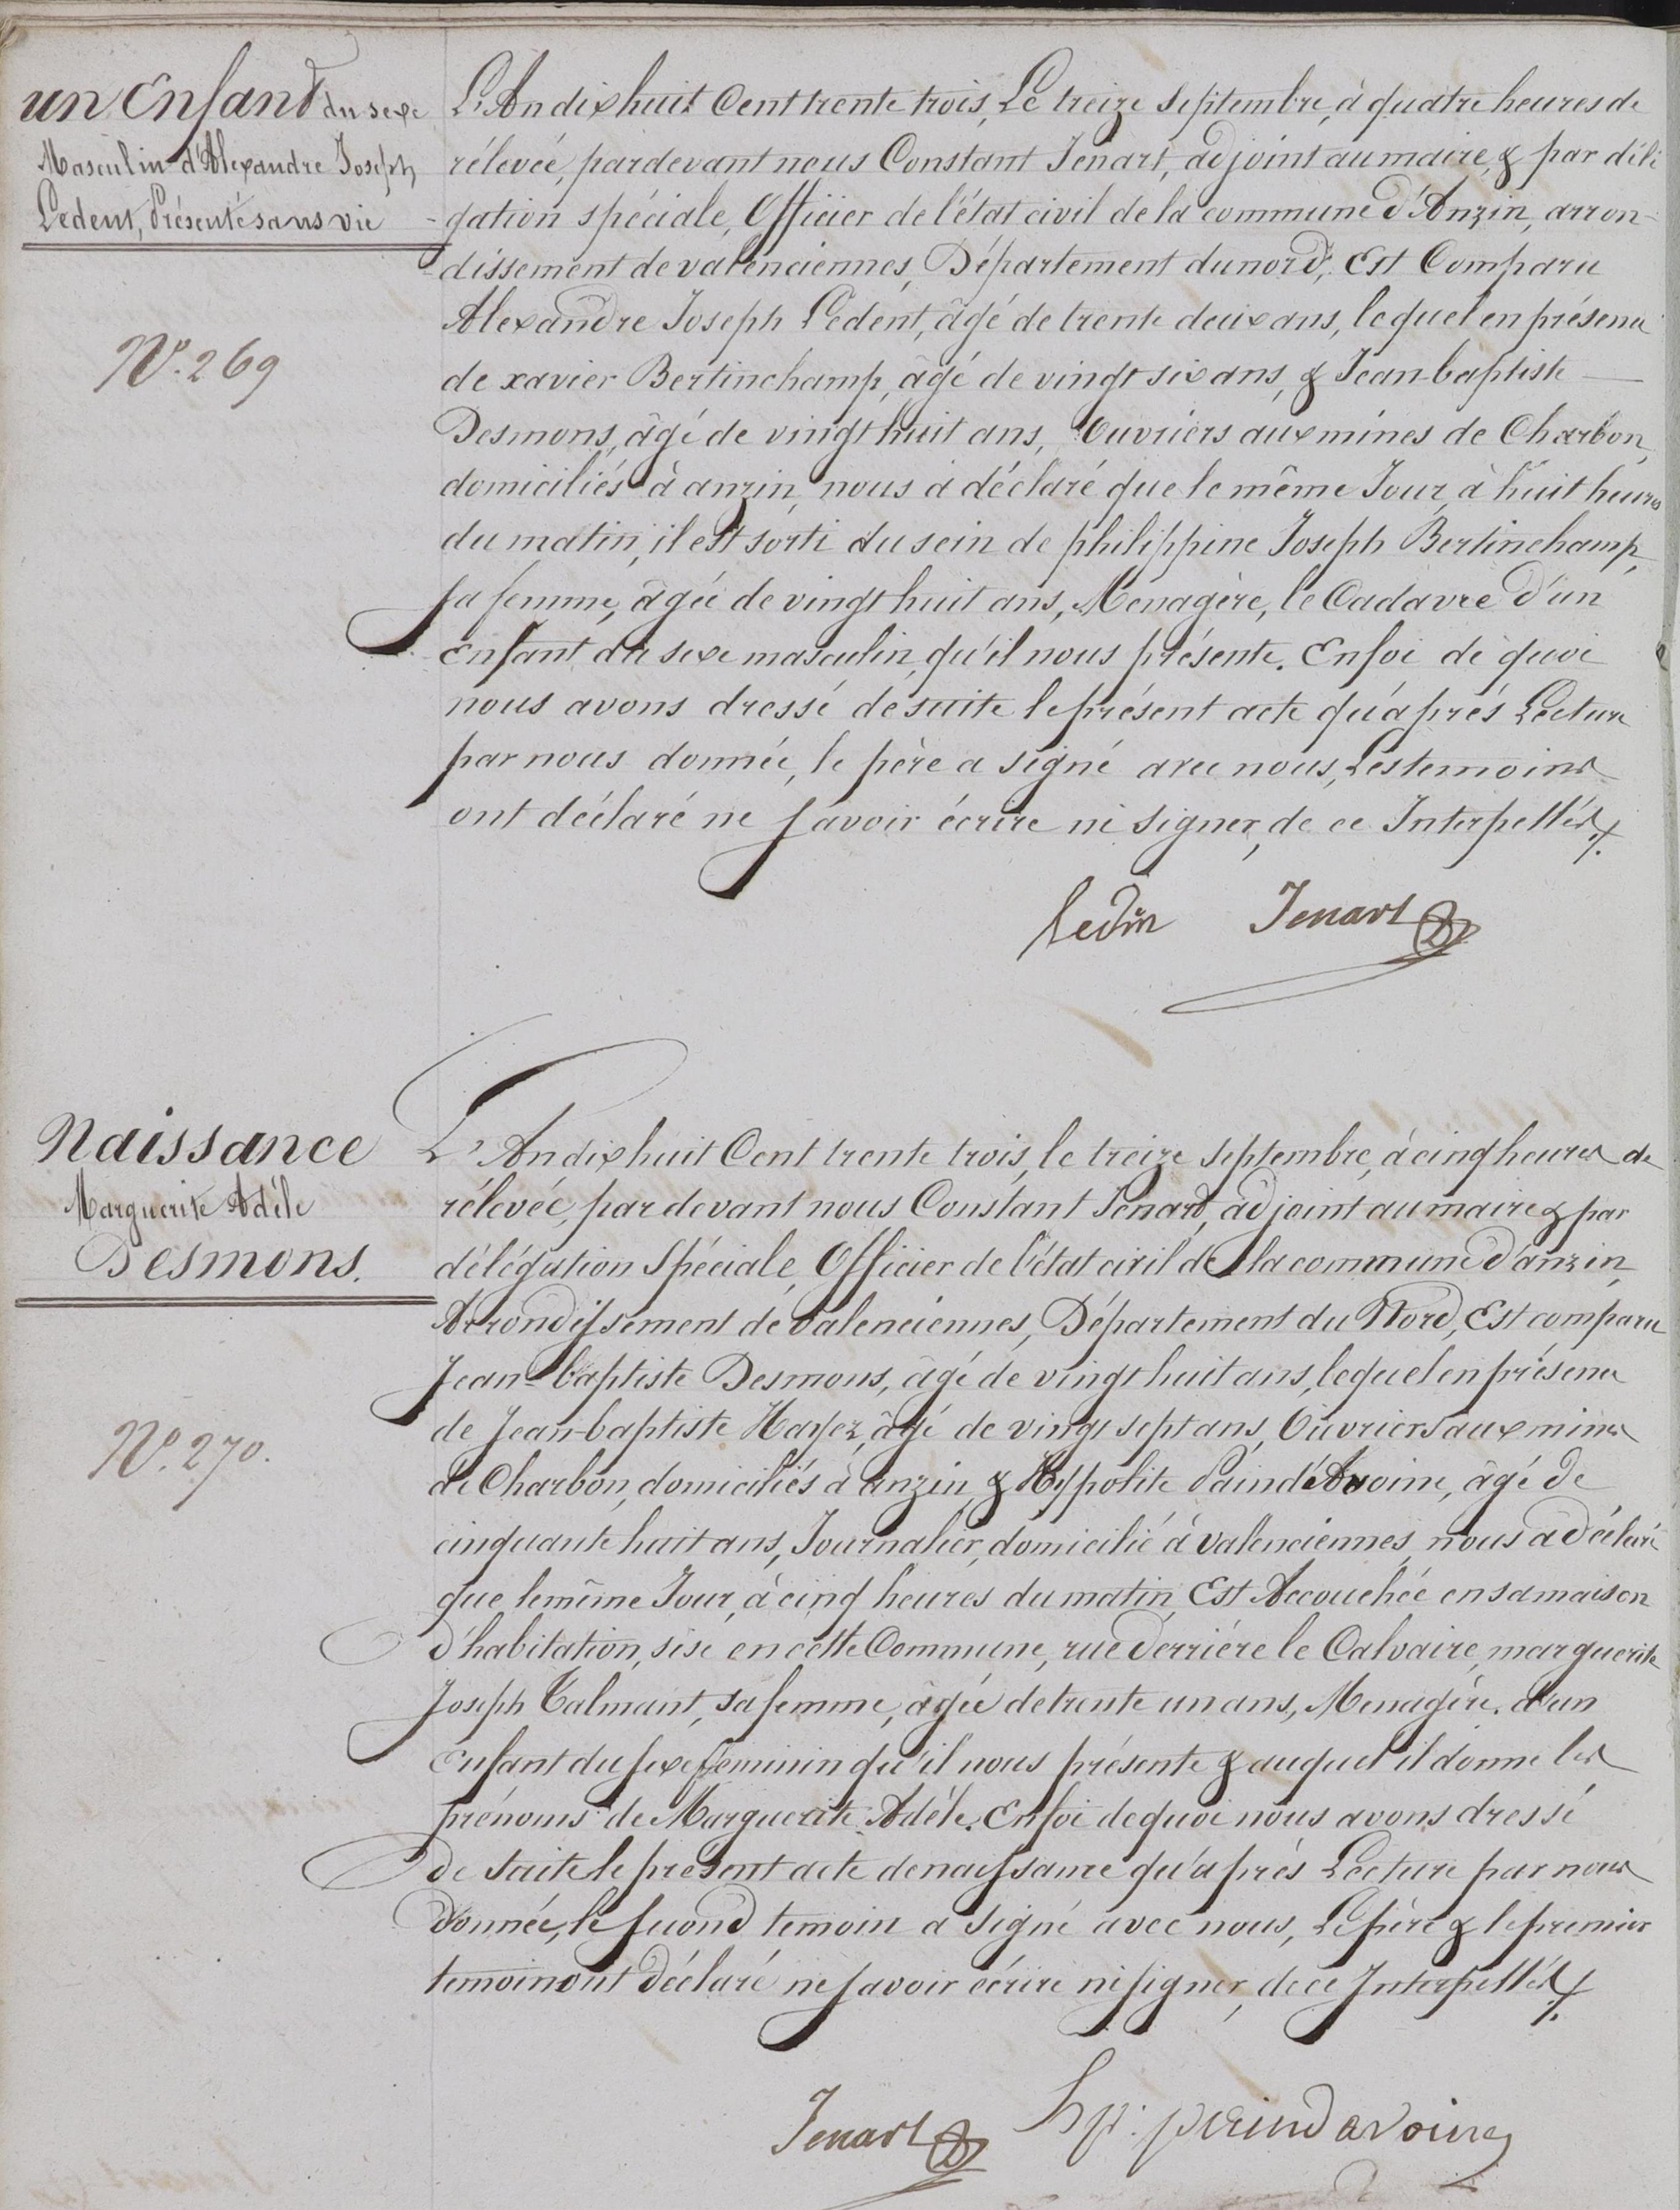 un Enfant du sexe
Masculin d'Alexandre Joseph
Ledent, Présenté sans vie
N°. 269
L'An dix huit Cent trente trois, Le treize Septembre, à quatre heures de
rélevée, pardevant nous Constant Jenart, adjoint au maire, & par délé
-gation spéciale, Officier de l'état civil de la commune d'Anzin, arron-
-dissement de valenciennes, Département du nord, Est Comparu
Alexandre Joseph Ledent, âgé de trente deux ans, lequel en présence
de xavier Bertinchamp, âgé de vingt six ans, & Jean-baptiste
Desmons, âgé de vingt huit ans, Ouvriers aux mines de Charbon,
domiciliés à anzin, nous a déclaré que le même Jour, à huit heures
du matin, il est sorti du sein de philippine Joseph Bertinchamp,
sa femme, âgée de vingt huit ans, Ménagère, le Cadavre d'un
enfant du sexe masculin, qu'il nous présente. En foi de quoi
nous avons dressé de suite le présent acte qu'après Lecture
par nous donnée, le père a signé avec nous, Les temoins
ont déclaré ne savoir écrire ni signer, de ce Interpellés./.
ledin Jenart
Naissance
Marguerite Adèle
Desmons.
N°. 270.
L'An dix huit Cent trente trois, le treize Septembre, à cinq heures de
rélevée, par devant nous Constant Jenart, adjoint au maire & par
délégation Spéciale, Officier de l'état civil de la commune d'anzin,
Arrondissement de valenciennes, Département du Nord, Est comparu
Jean-baptiste Desmons, âgé de vingt huit ans, lequel en présence
de Jean-baptiste Hayez, âgé de vingt sept ans, Ouvriers aux mines
de Charbon, domiciliés à anzin & Hyppolite PaindAvoine, âgé de
cinquante huit ans, Journalier, domicilié à valenciennes, nous a déclaré
que le même Jour, à cinq heures du matin, Est Accouchée en sa maison
d'habitation, sise en cette Commune, rue derrière le Calvaire, marguerite
Joseph Talmant, sa femme, âgée de trente un ans, Menagère, d'un
enfant du sexe féminin qu'il nous présente & auquel il donne les
prénoms de Marguerite Adèle. En foi de quoi nous avons dressé
de suite le présent acte de naissance qu'après Lecture par nous
donnée, le second temoin a signé avec nous, Le père & le premier
temoin ont déclaré ne savoir écrire ni signer, de ce Interpellés./.
Jenart hp. paindavoine